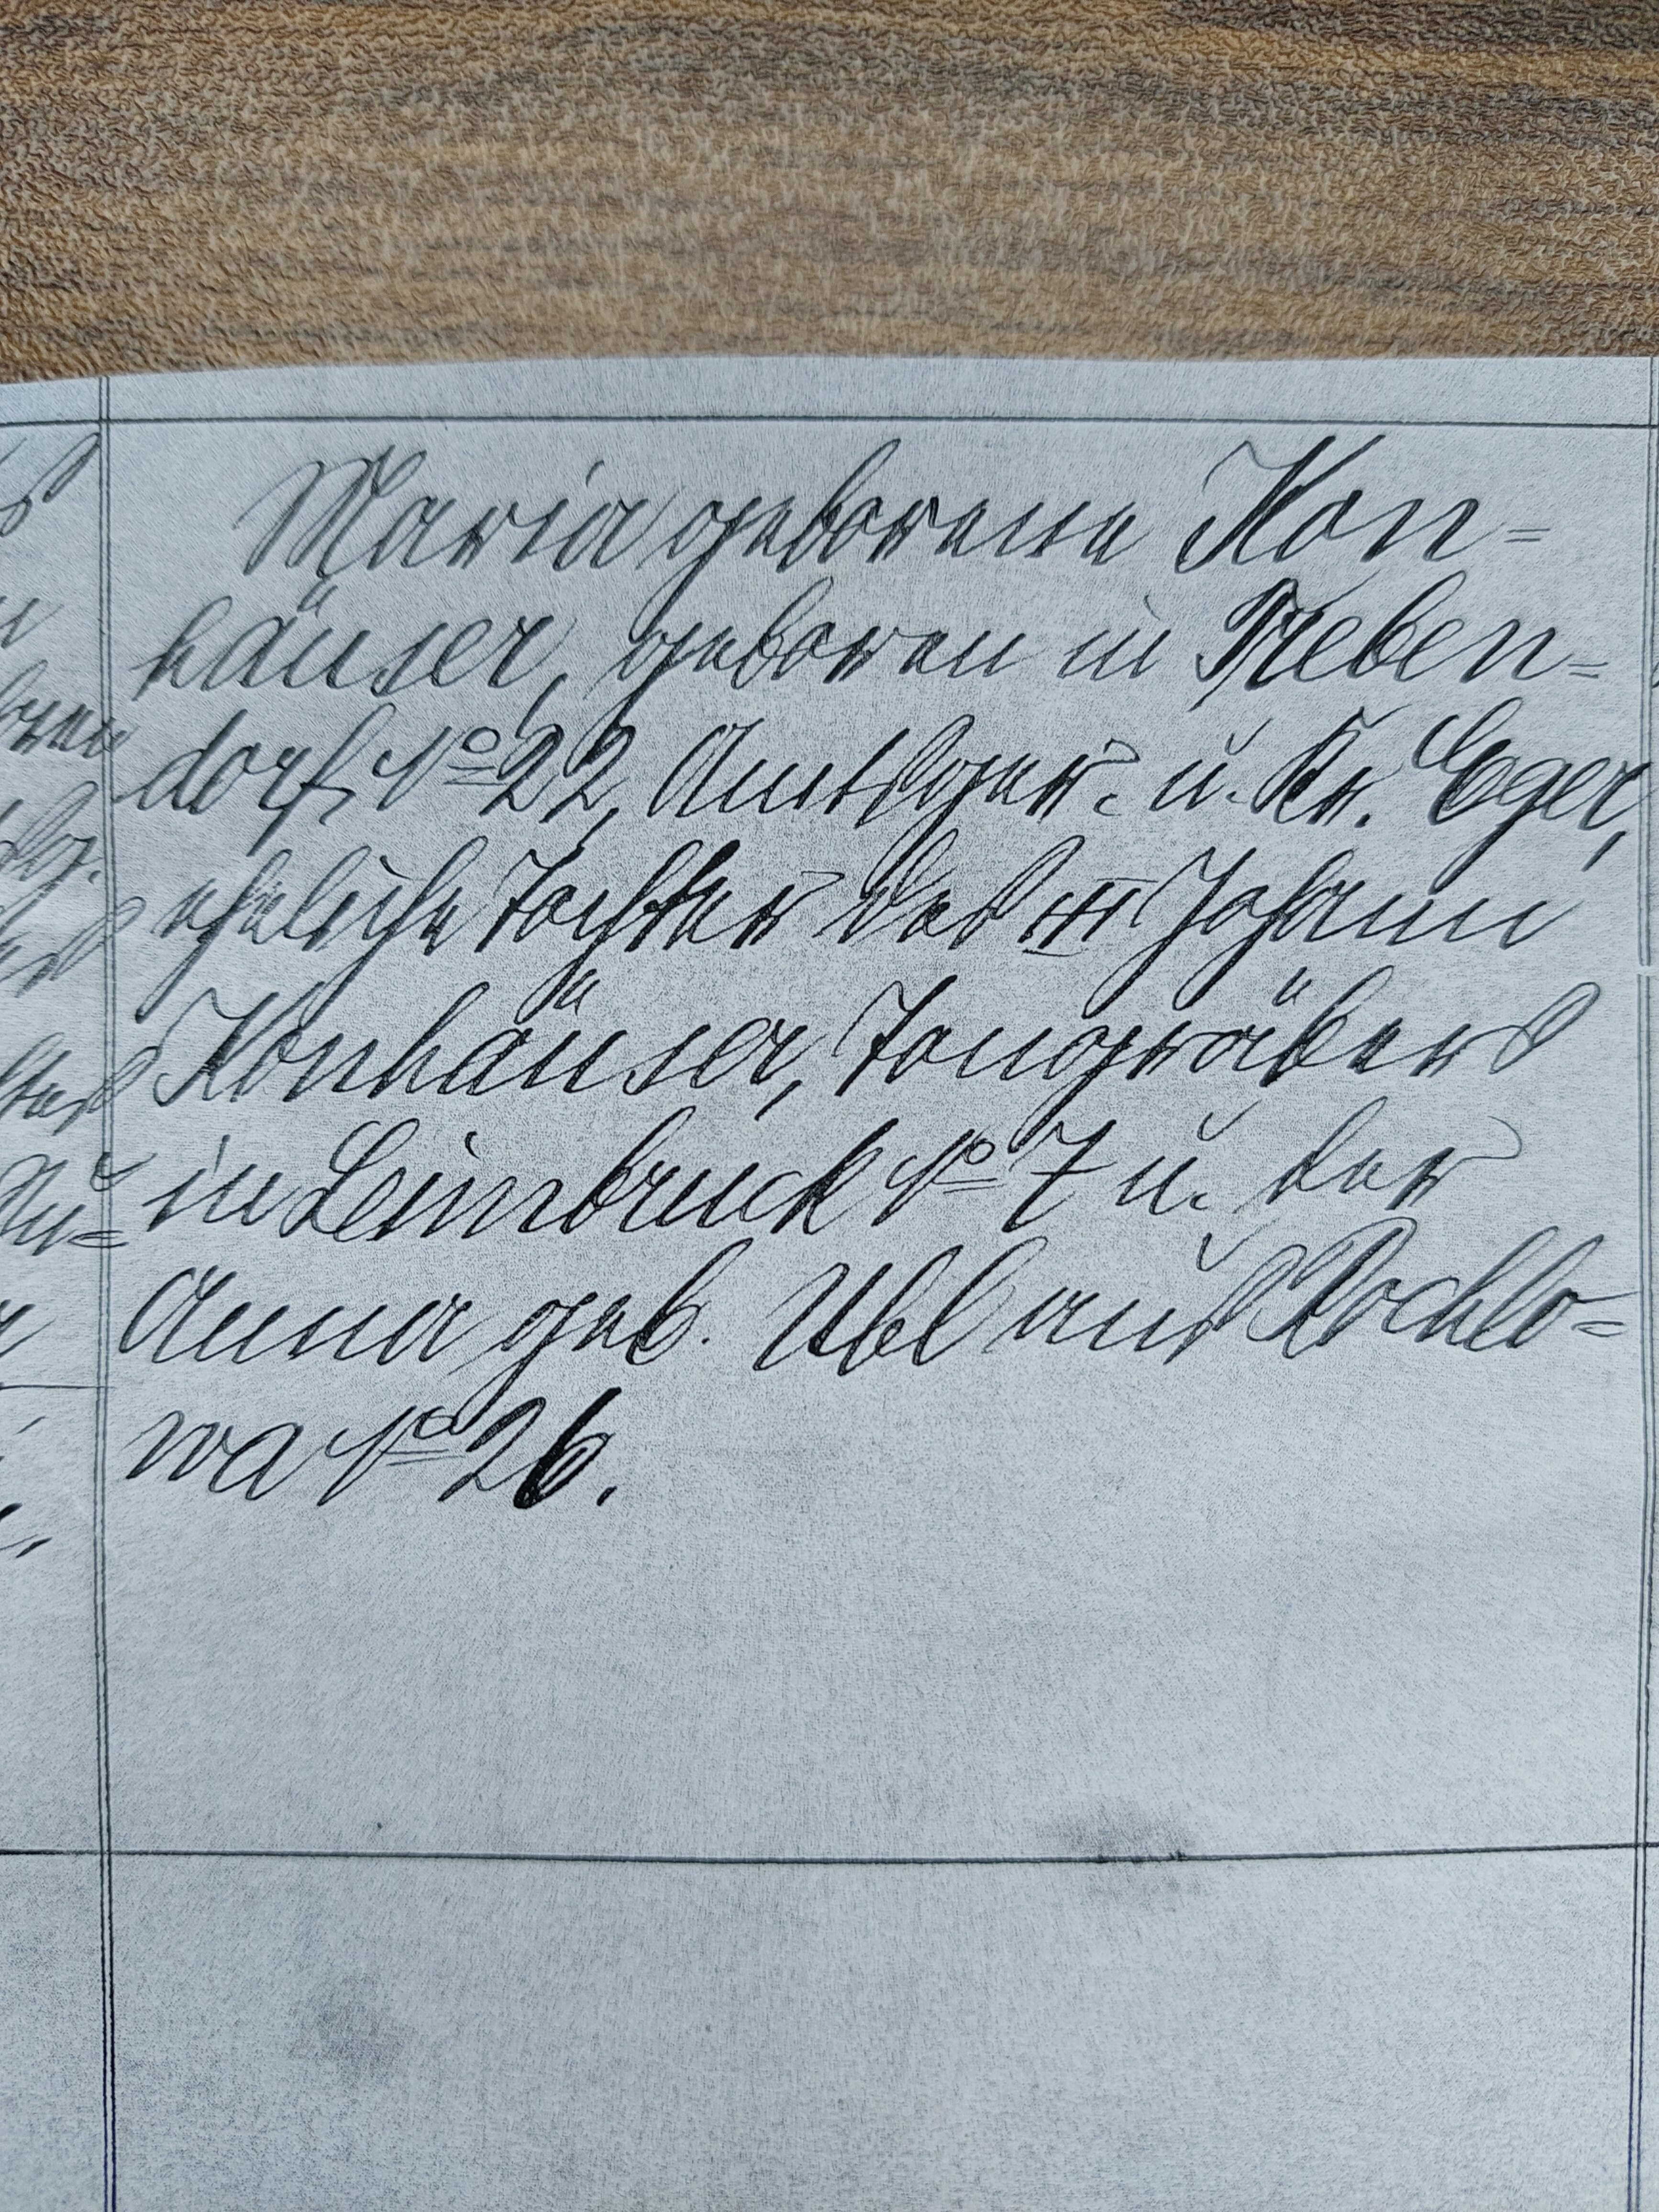 Maria geborene Kon=
häuser, geboren in Treben=
dorf No 22, Amtsger. u. Kr. Eger,
eheliche Tochter des Johann
Konhäuser, Tongräbers
in Leimbruck No 7 u. der
Anna geb. Ubl aus Rochlo=
wa No 26.